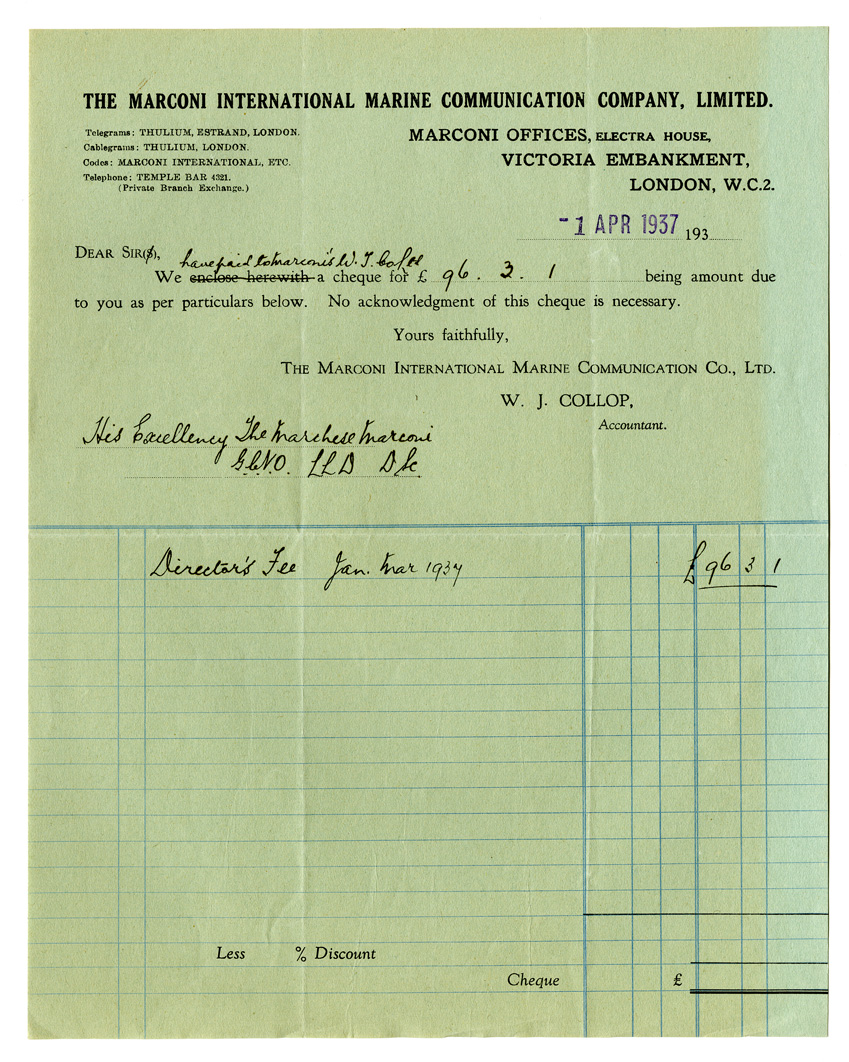 THE MARCONI INTERNATIONAL MARINE COMMUNICATION COMPANY, LIMITED.
Telegrams: THULIUM, ESTRAND, LONDON.
Cablegrams: THULIUM, LONDON.
Codes: MARCONI INTERNATIONAL, ETC.
Telephone: TEMPLE BAR 4321.
(Private Branch Exchange.)
MARCONI OFFICES, ELECTRA HOUSE,
VICTORIA EMBANKMENT,
LONDON, W.C.2.
-1 APR 1937 193
DEAR SIR(S),
have paid to Marconi's W. T. Co/
We enclose herewith a cheque for £ 96. 3. 1 being amount due
to you as per particulars below. No acknowledgment of this cheque is necessary.
Yours faithfully,
THE MARCONI INTERNATIONAL MARINE COMMUNICATION CO., LTD.
W. J. COLLOP,
Accountant.
His Excellency The Marchese Marconi
G.C.V.O. LLD DSc
Director's Fee Jan. Mar 1937 £96 3 1
Less % Discount
Cheque £